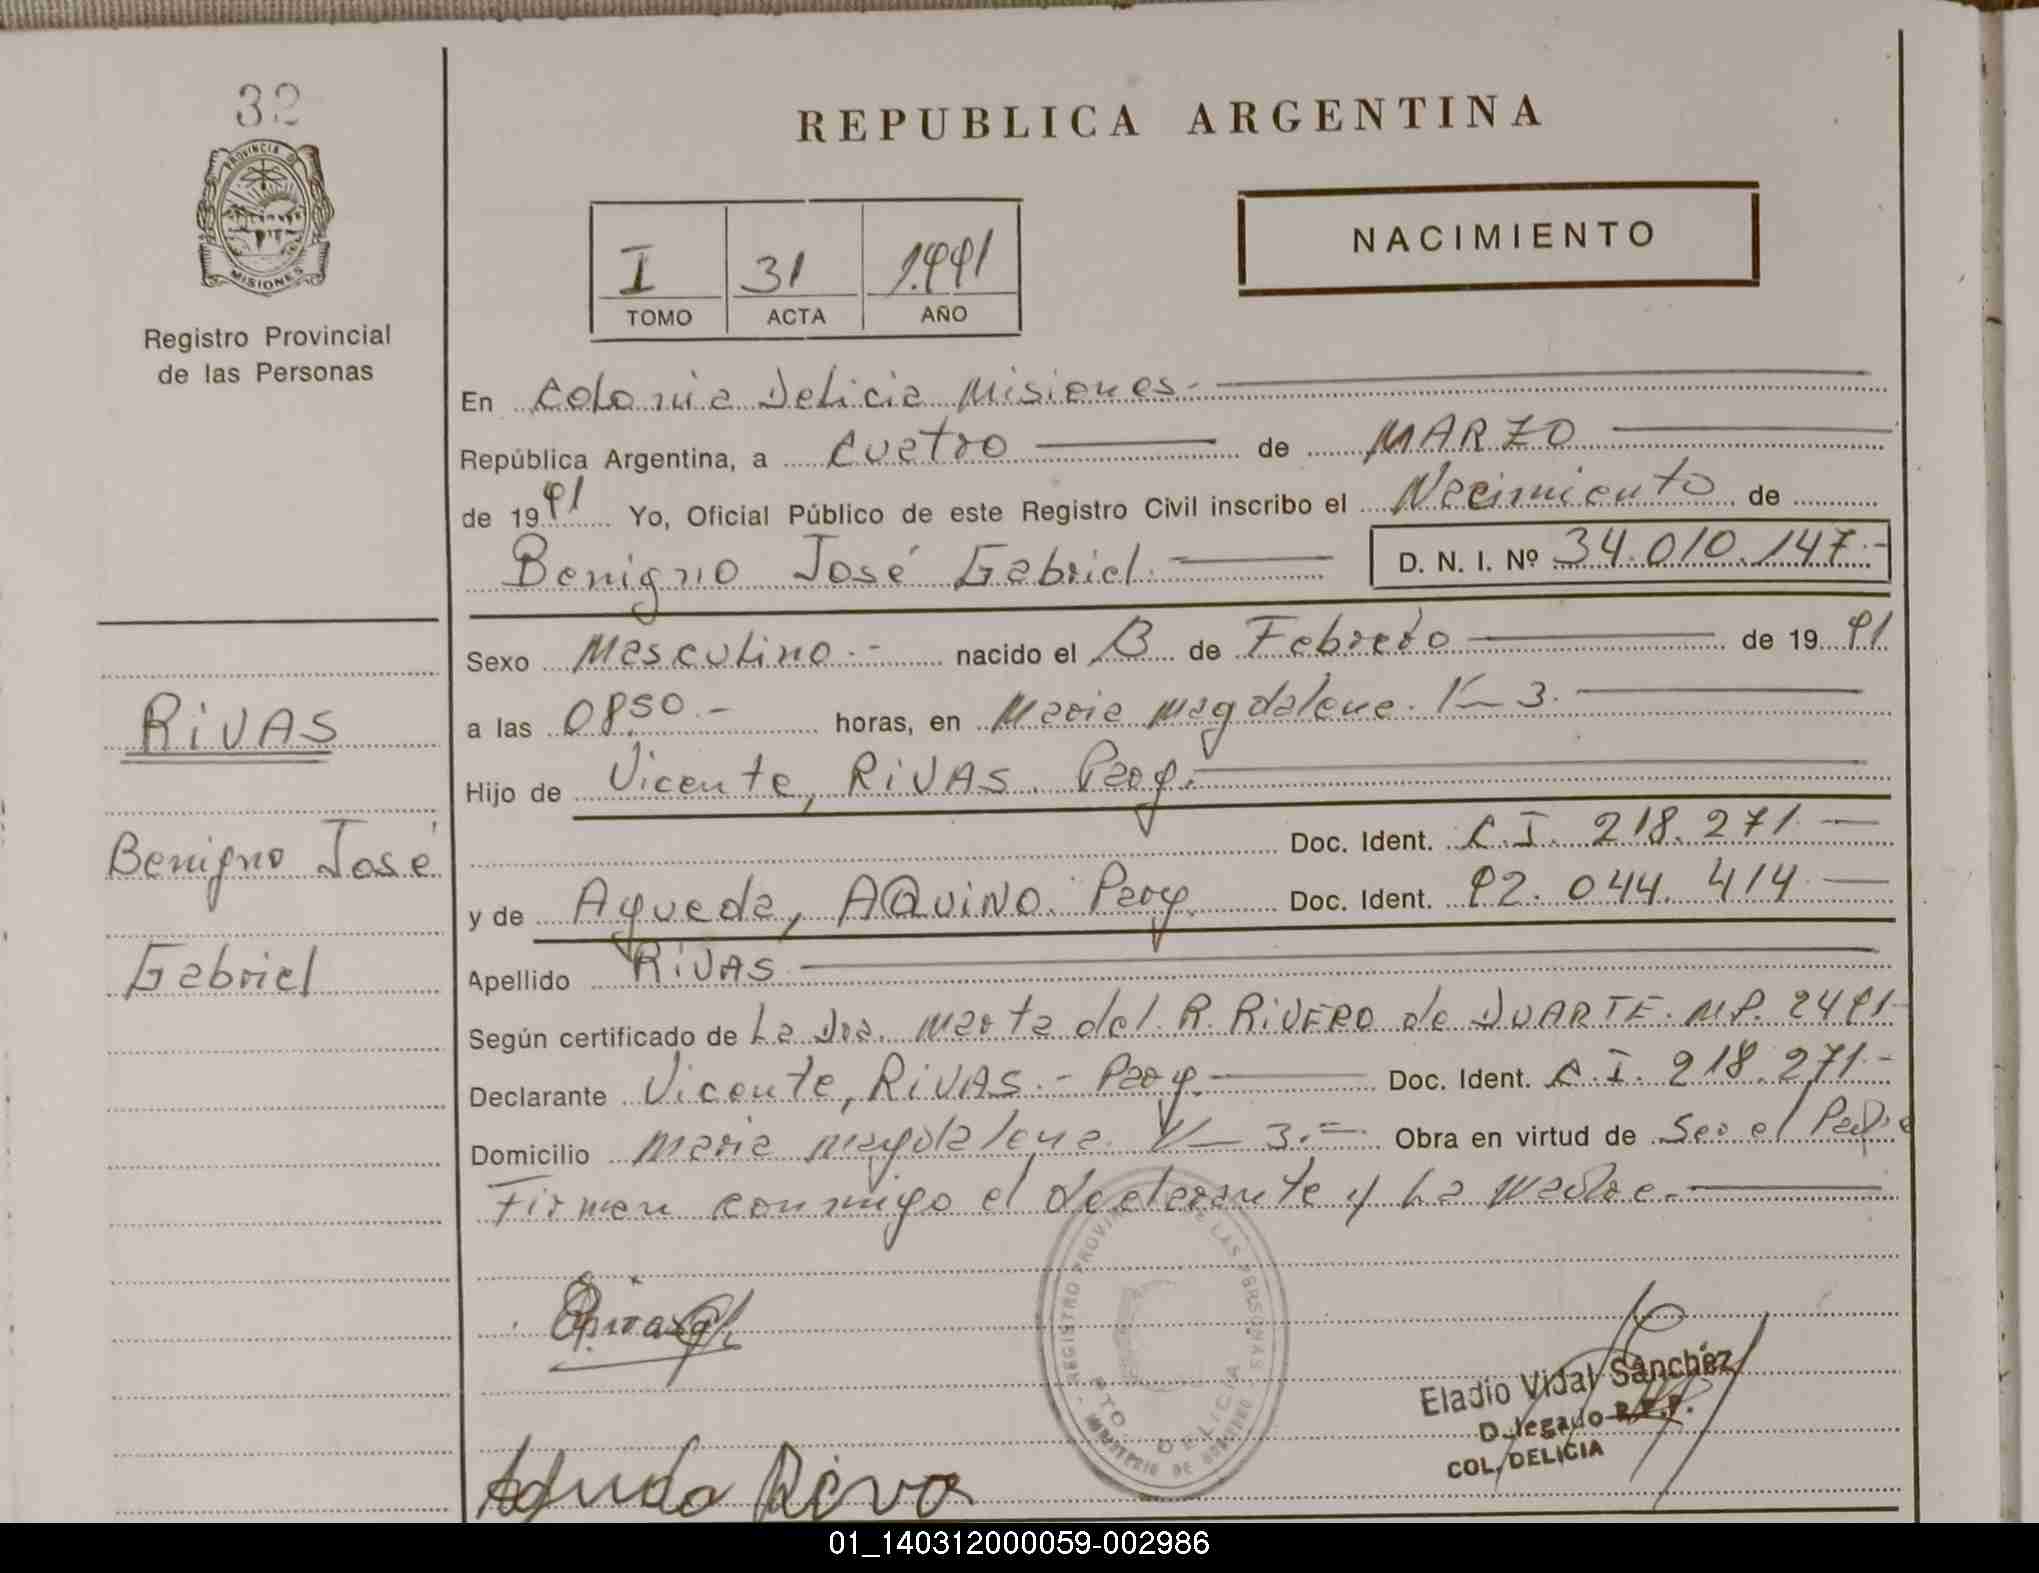 32
PROVINCIA D
MISIONES
Registro Provincial
de las Personas
REPUBLICA ARGENTINA
NACIMIENTO
I 31 1.991
TOMO ACTA AÑO
En Colonia Delicia Misiones.-
República Argentina, a cuatro de MARZO
de 1991 Yo, Oficial Público de este Registro Civil inscribo el Nacimiento de
Benigno José Gabriel. D. N. I. Nº 34.010.147.-
Sexo Masculino.- nacido el 13 de Febrero de 1991
a las 0850.- horas, en Maria Magdalena. K 3.
Hijo de Vicente, RiVAS. Parg.
Doc. Ident. C.I. 218.271.
y de Agueda, AQUiNO. Parg. Doc. Ident. 92.044.414
Apellido RiVAS
Según certificado de La Dra. Marta del R. RiVERO de DUARTE. M.P. 2491
Declarante Vicente, RiVAS.- Parg. Doc. Ident. C.I. 218.271.-
Domicilio Maria Magdalena K 3.= Obra en virtud de Ser el Padre
Firman conmigo el declarante y La Madre.
RIVAS
Benigno José
Gabriel
REGISTRO PROVIN LAS PERSONAS
PTO. DELICIA
MINISTERIO DE GOBIERNO
Eladio Vidal Sanchez
Delegado R.P.P.
COL. DELICIA
01_140312000059-002986